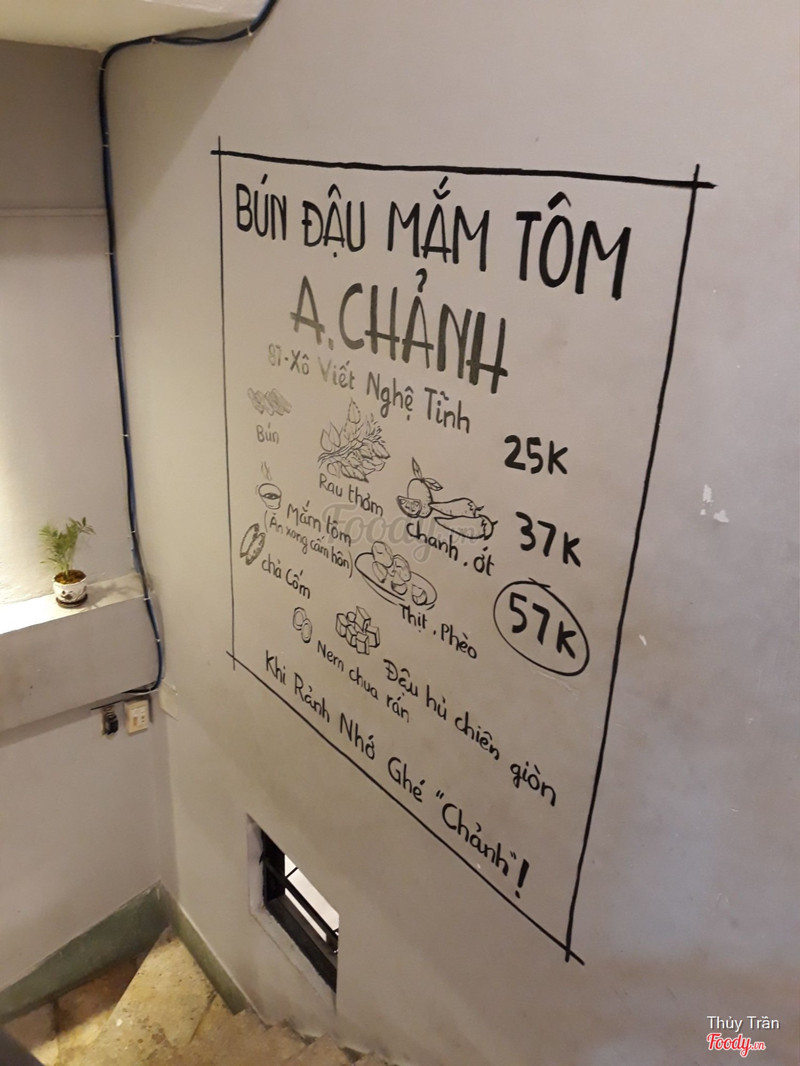 BÚN ĐẬU MẮM TÔM
A.CHẢNH
87-Xô Viết Nghệ Tĩnh
Bún
Rau thơm
25K
Mắm tôm
(Ăn xong cấm hôn)
Chanh, ớt
37K
chả Cốm
Thịt, Phèo
57K
Nem chua rán
Đậu hủ chiên giòn
Khi Rảnh Nhớ Ghé "Chảnh"!
Foody.vn
Thủy Trần
Foody.vn